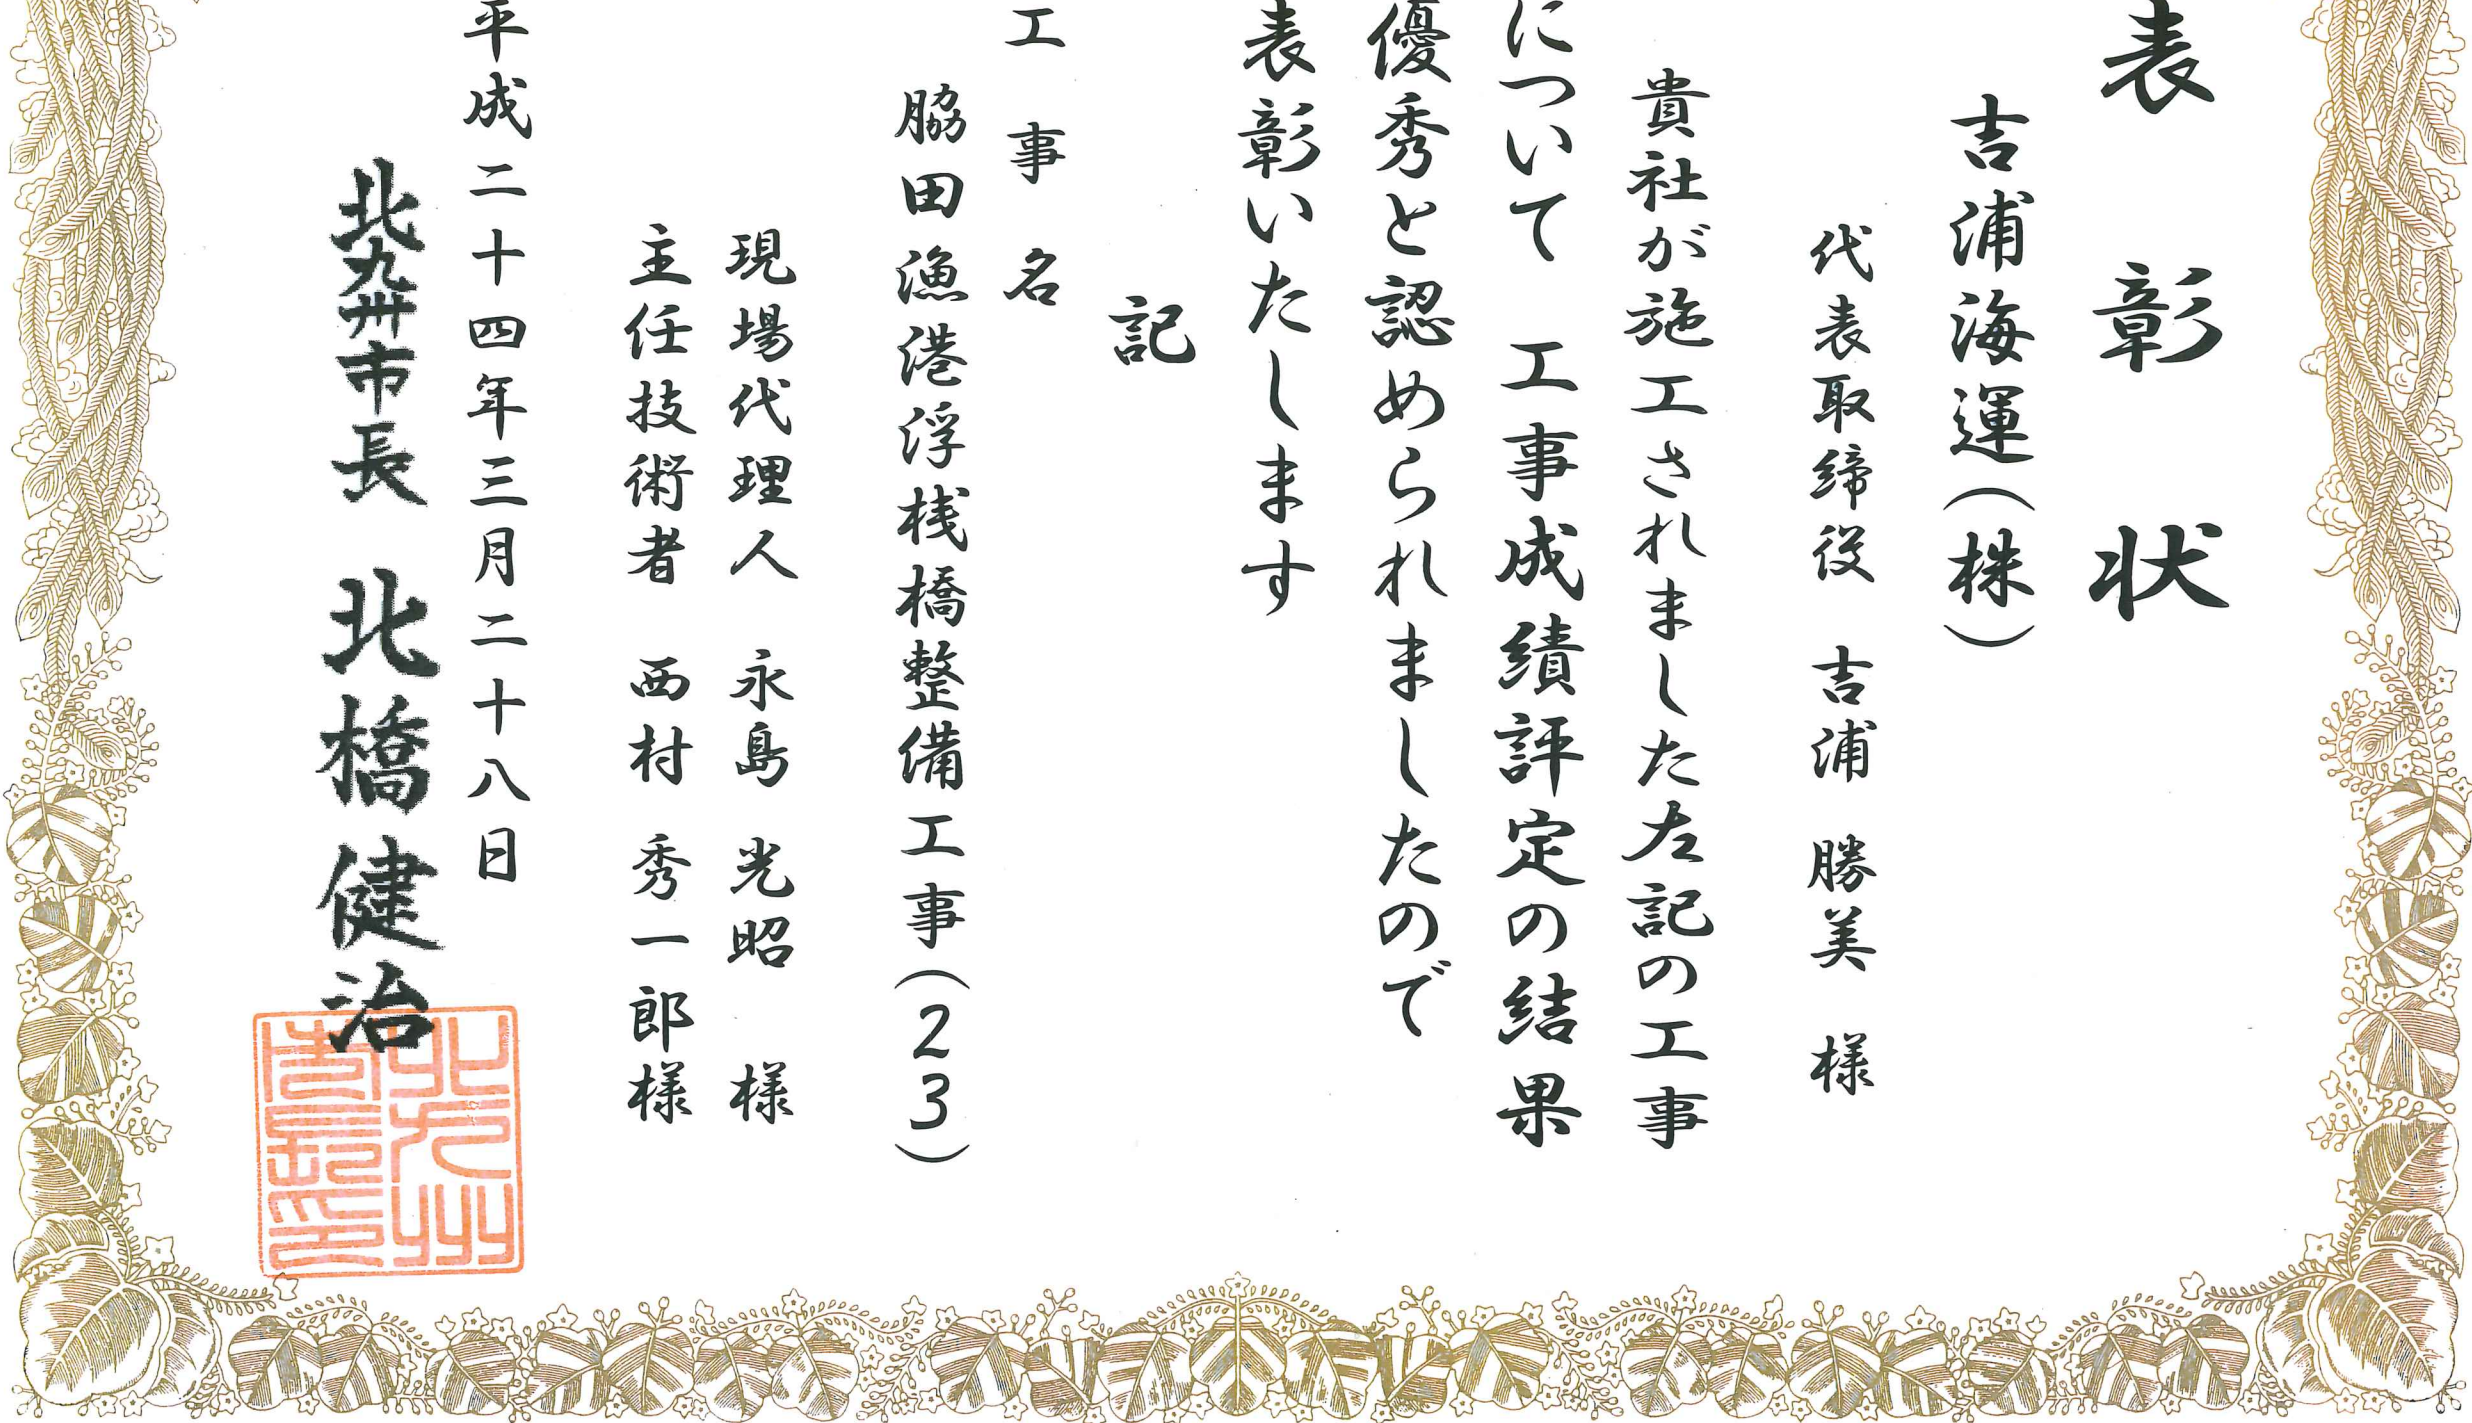 表彰状
吉浦海運(株)
代表取締役 吉浦 勝美 様
貴社が施工されました左記の工事
について 工事成績評定の結果
優秀と認められましたので
表彰いたします
記
工事名
脇田漁港浮桟橋整備工事(23)
現場代理人 永島 光昭 様
主任技術者 西村 秀一郎様
平成二十四年三月二十八日
北九州市長 北橋健治
北九州
市長印